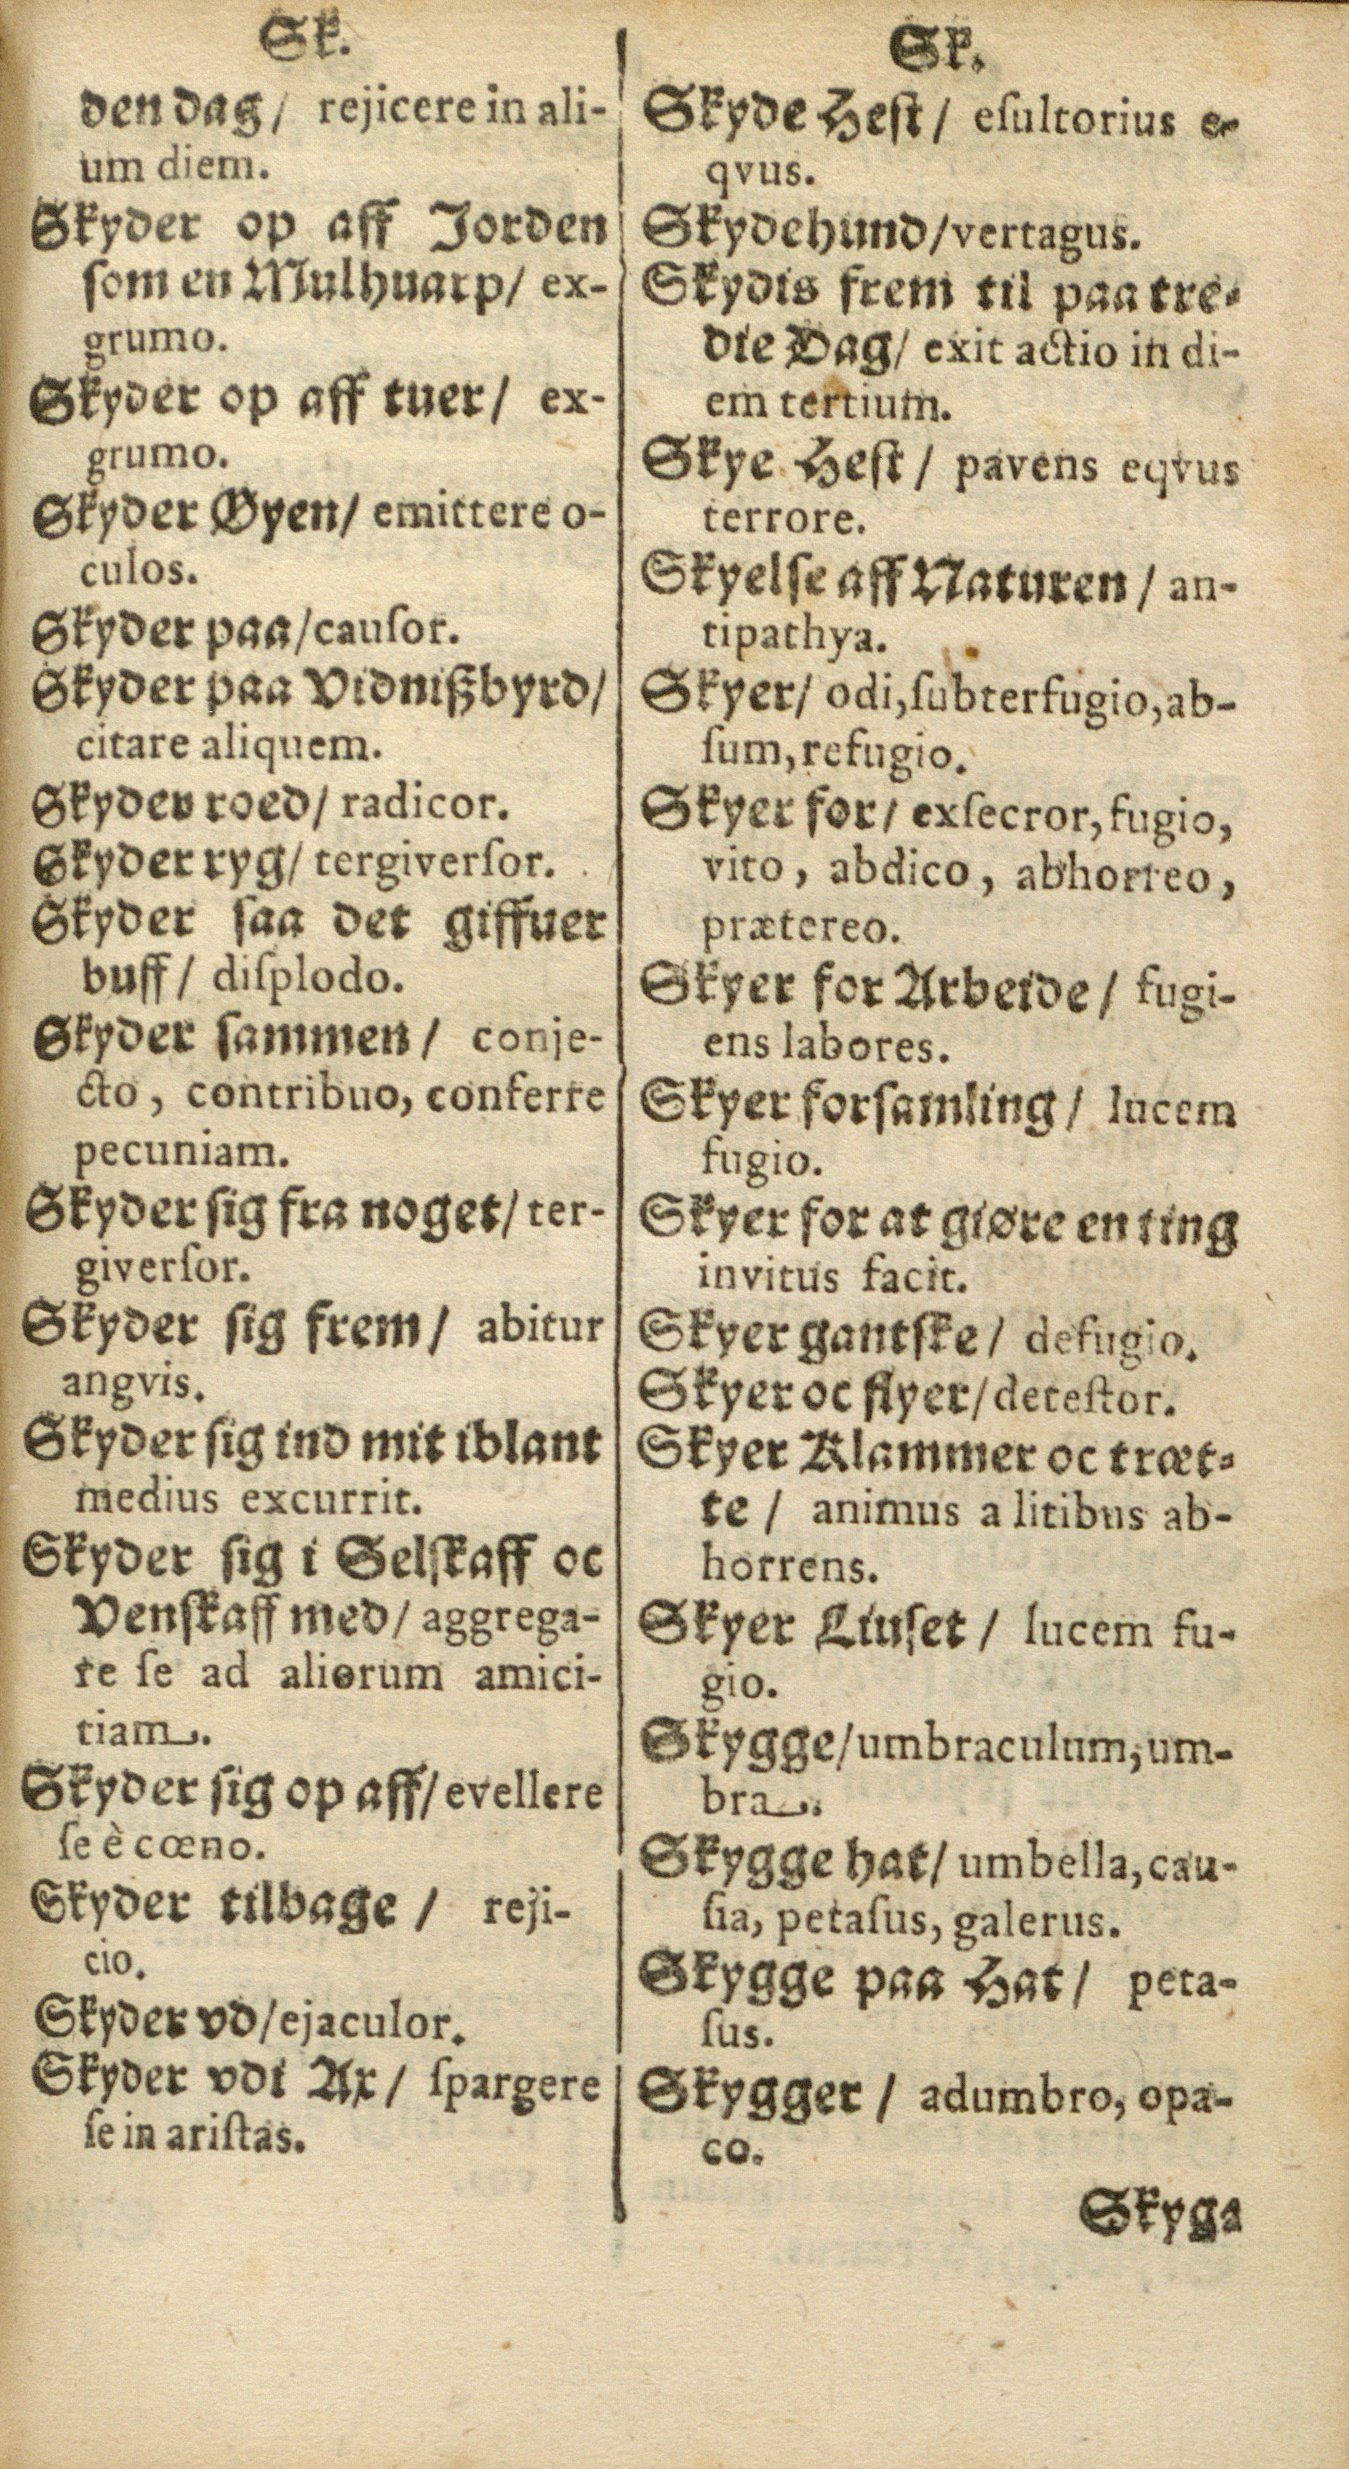 Sk.
den dag/ rejicere in ali-
um diem.
Skyder op aff Jorden
ſom en Mulhuarp/ ex-
grumo.
Skyder op aff tuer/ ex-
grumo.
Skyder Øyen/ emittere o-
culos.
Skyder paa/cauſor.
Skyder paa Vidnißbyrd/
citare aliquem.
Skyder roed/ radicor.
Skyder ryg/ tergiverſor.
Skyder ſaa det giffuer
buff/ diſplodo.
Skyder ſammen/ conje-
cto, contribuo, conferre
pecuniam.
Skyder ſig fra noget/ ter-
giverſor.
Skyder ſig frem/ abitur
angvis.
Skyder ſig ind mit iblant
medius excurrit.
Skyder ſig i Selſkaff oc
Venſkaff med/ aggrega-
re ſe ad aliorum amici-
tiam.
Skyder ſig op aff/evellere
ſe è cœno.
Skyder tilbage/ reji-
cio.
Skyder vd/ejaculor.
Skyder vdi Ax/ ſpargere
ſe in ariſtas.
Sk.
Skyde Heſt/ eſultorius e-
qvus.
Skydehund/vertagus.
Skydis frem til paa tre-
die Dag/ exit actio in di-
em tertium.
Skye Heſt/ pavens eqvus
terrore.
Skyelſe aff Naturen/ an-
tipathya.
Skyer/ odi,ſubterfugio,ab-
ſum,refugio.
Skyer for/ exſecror,fugio,
vito, abdico, abhorreo,
prætereo.
Skyer for Arbeide/ fugi-
ens labores.
Skyer forſamling/ lucem
fugio.
Skyer for at giøre en ting
invitus facit.
Skyer gantſke/ defugio.
Skyer oc flyer/deteſtor.
Skyer Klammer oc træt-
te/ animus a litibus ab-
horrens.
Skyer Liuſet/ lucem fu-
gio.
Skygge/umbraculum,um-
bra.
Skygge hat/ umbella,cau-
ſia, petaſus, galerus.
Skygge paa Hat/ peta-
ſus.
Skygger/ adumbro, opa-
co.
Skyga